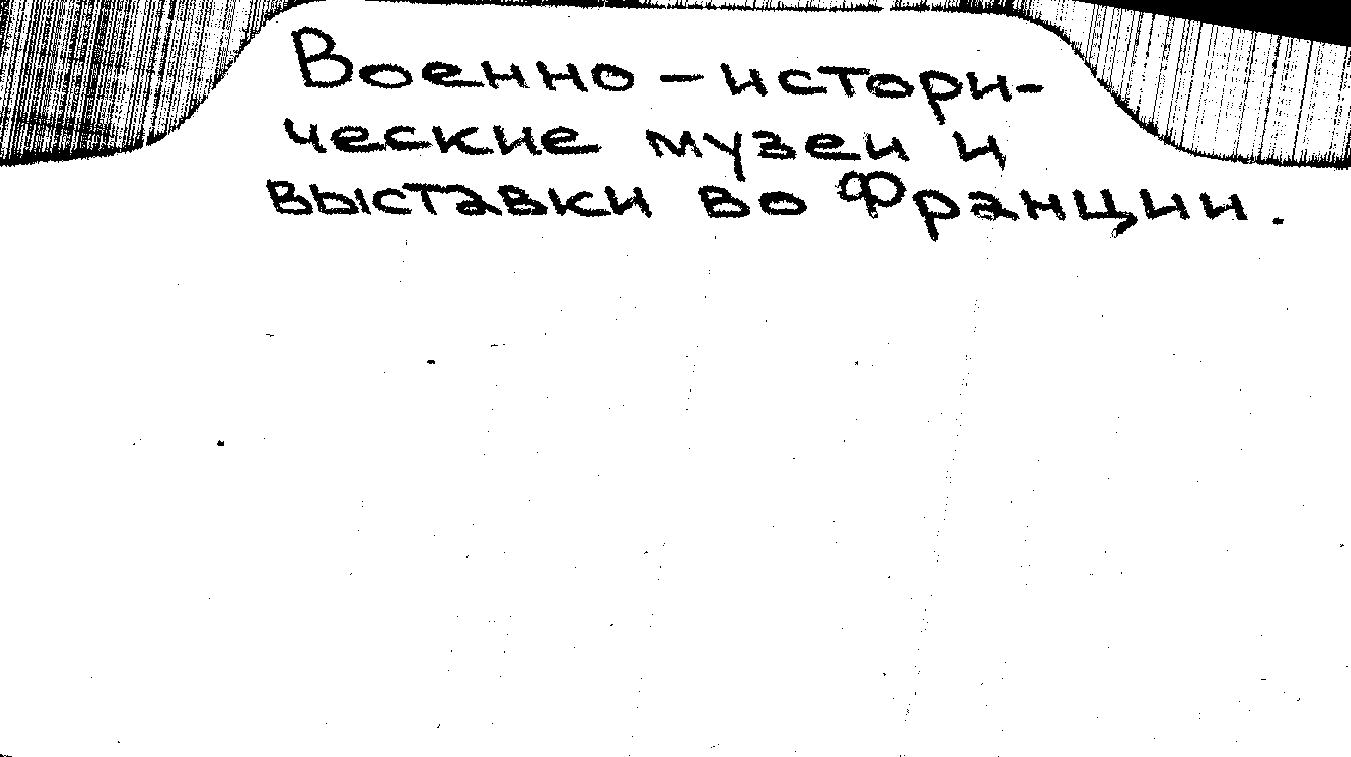 Военно-истори-
ческие музеи и
выставки во Франции.